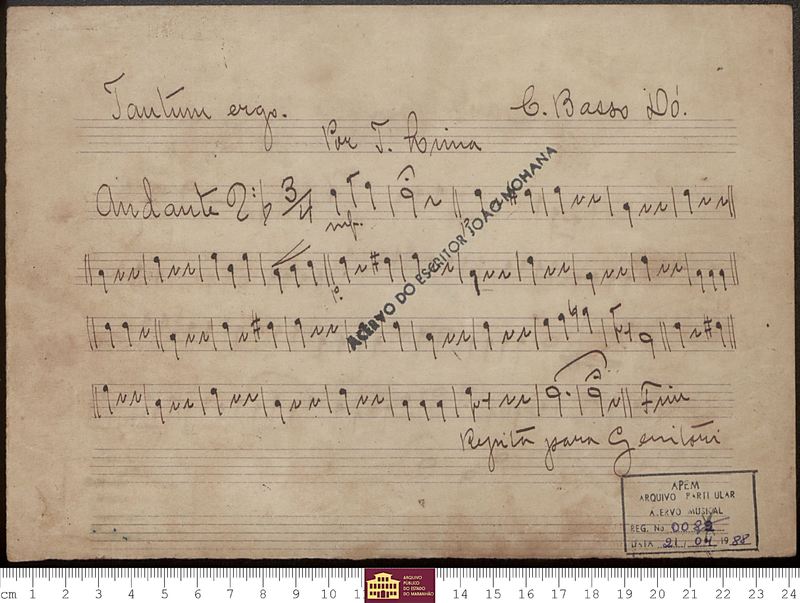 Tantum ergo.
C. Basso Dó.
Por T. Lima
Andante
3/4
mf.
ACERVO DO ESCRITOR JOÃO MOHANA
Fim
Repita para Genitóri
APEM
ARQUIVO PARTICULAR
ACERVO MUSICAL
REG. No. 0082
DATA 21/04/1988
cm 1 2 3 4 5 6 7 8 9 10 14 15 16 17 18 19 20 21 22 23 24
ARQUIVO
PÚBLICO
DO ESTADO
DO MARANHÃO